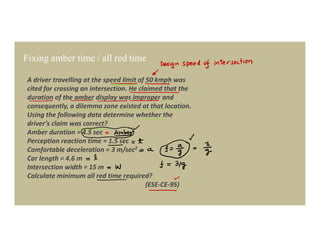 Fixing amber time / all red time
Design speed of intersection
A driver travelling at the speed limit of 50 kmph was
cited for crossing an intersection. He claimed that the
duration of the amber display was improper and
consequently, a dilemma zone existed at that location.
Using the following data determine whether the
driver's claim was correct?
Amber duration = 4.5 sec = Amber
Perception reaction time = 1.5 sec = t
Comfortable deceleration = 3 m/sec² = a f = a/g = 3/g
Car length = 4.6 m = l f = 3/g
Intersection width = 15 m = W
Calculate minimum all red time required?
(ESE-CE-95)